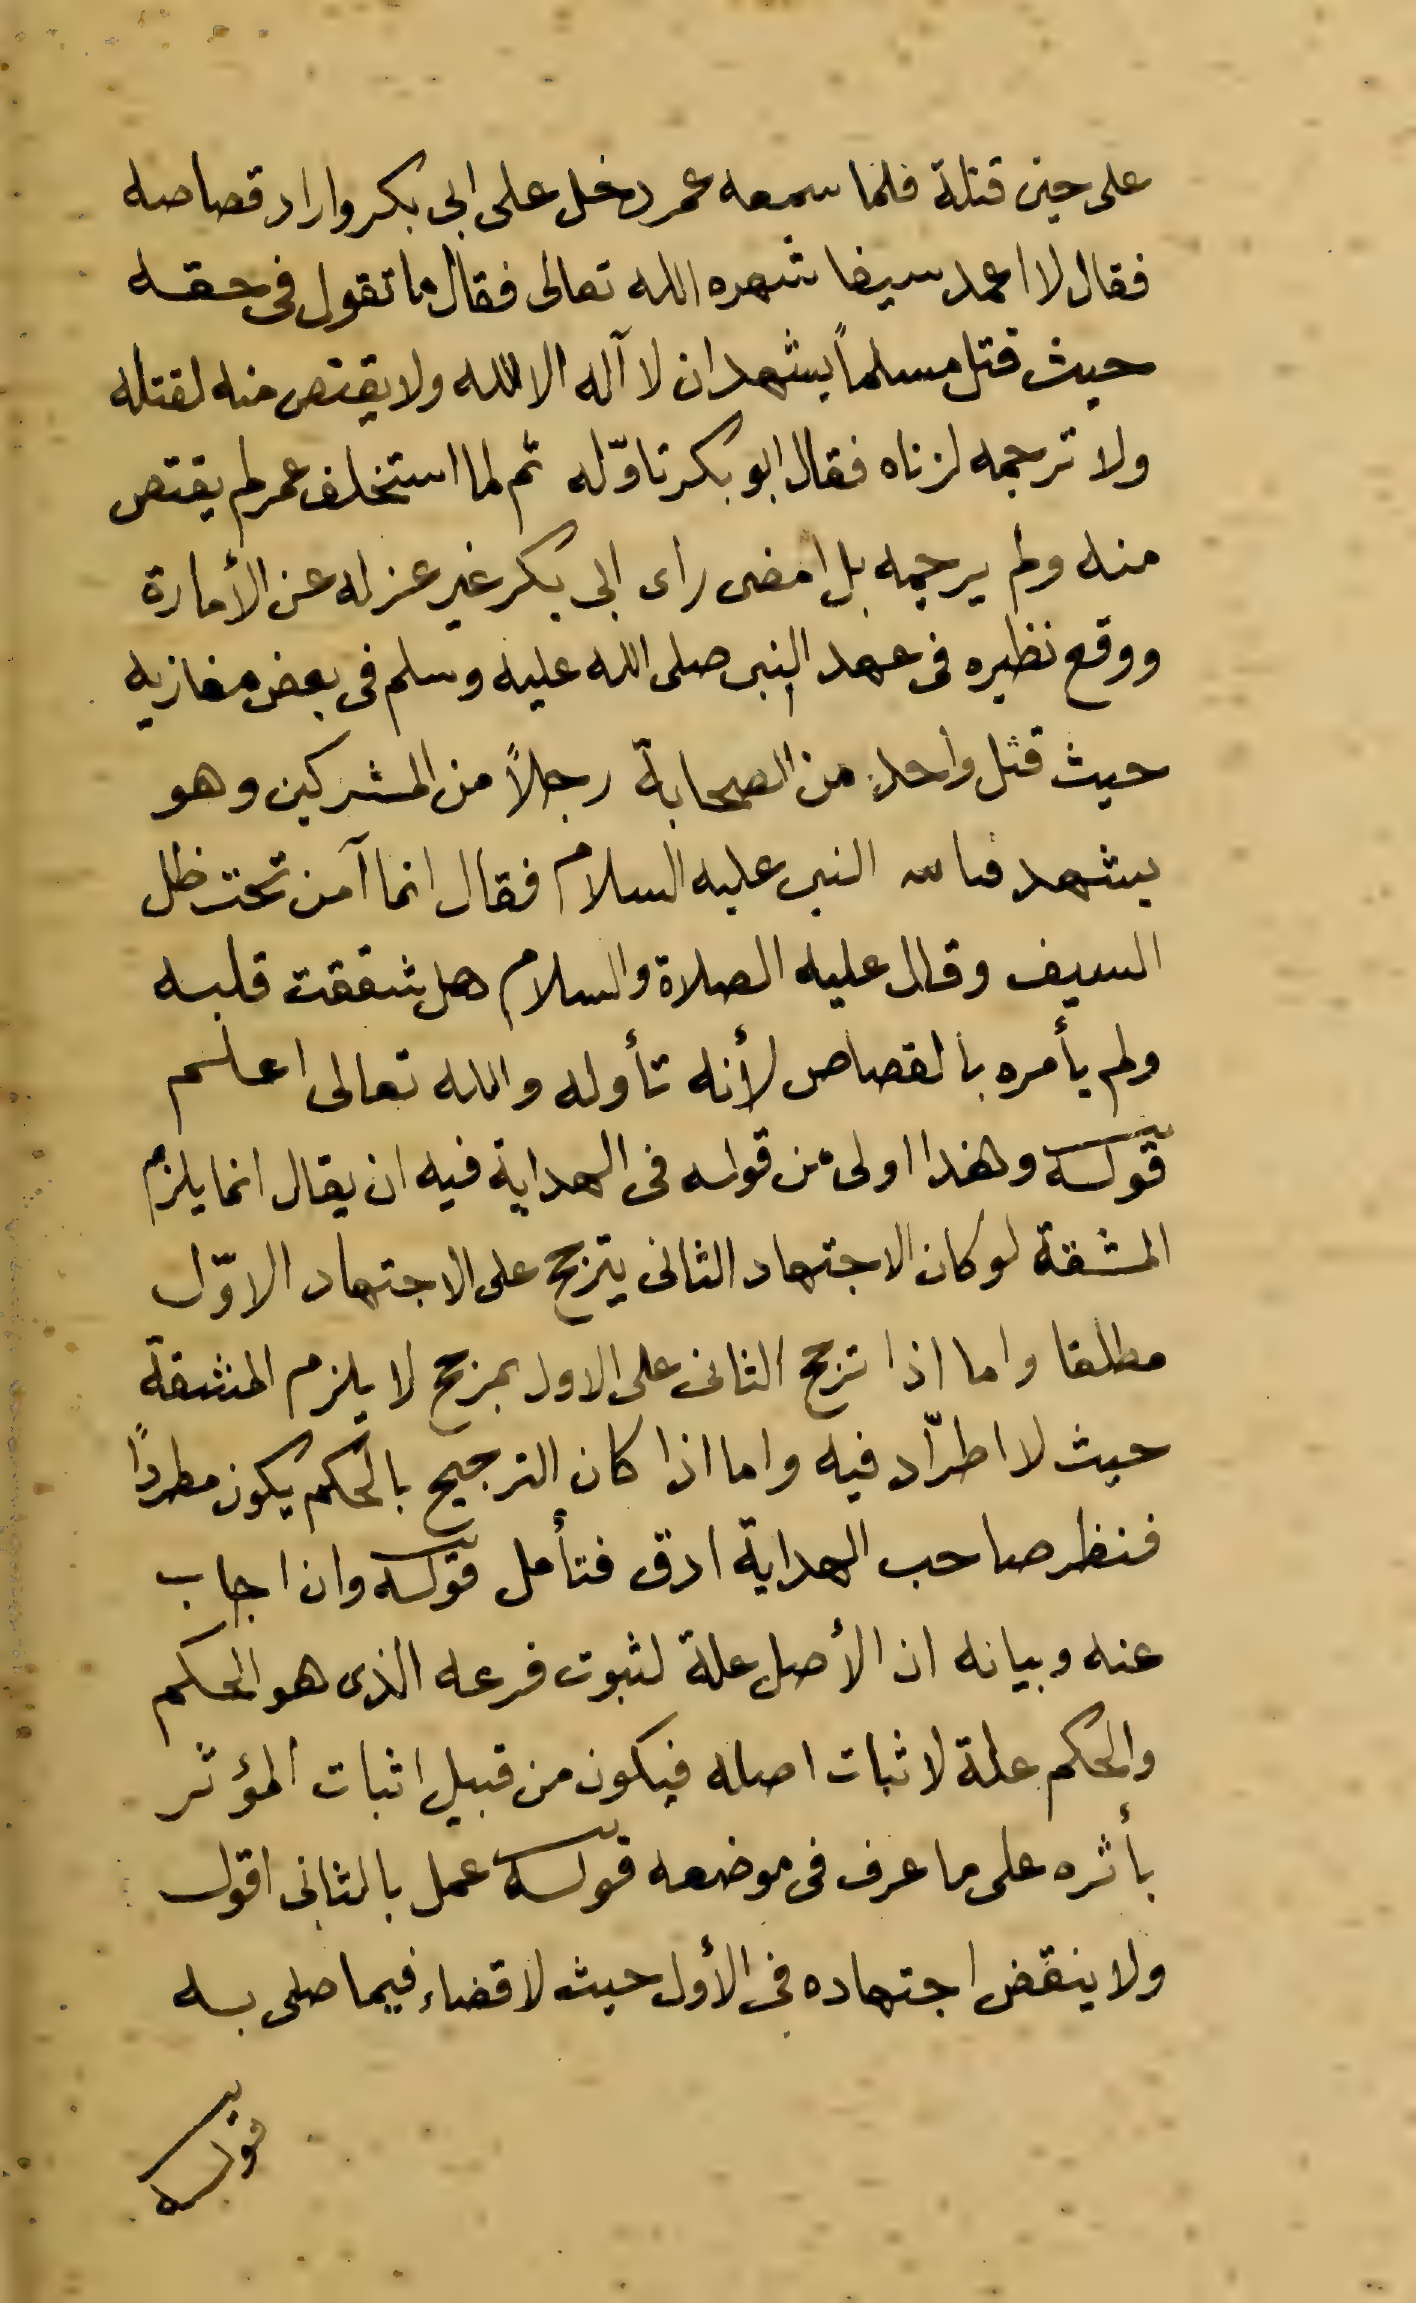 على حين قتلة فلما سمعه عمر دخل على ابى بكر واراد قصاصه
فقال لا اعمد سيفا شهره الله تعالى فقال ما تقول فى حقه
حيث قتل مسلماً يشهد ان لا آله الا الله ولا يقتص منه لقتله
ولا ترجمه لزناه فقال ابو بكر تاوّله ثم لما استخلف عمر لم يقتص
منه ولم يرجمه بل امضى راى ابى بكر غير عزله عن الأمارة
ووقع نظيره فى عهد النبى صلى الله عليه وسلم فى بعض مغازيه
حيث قتل واحد من الصحابة رجلاً من المشركين وهو
يشهد النبى عليه السلام فقال انما آمن تحت ظل
السيف وقال عليه الصلاة والسلام هل شققت قلبه
ولم يأمره بالقصاص لأنه تأوله والله تعالى اعلم
قوله وهذا اولى من قوله فى الهداية فيه ان يقال انما يلزم
المشقة لو كان الاجتهاد الثانى يترجح على الاجتهاد الاوّل
مطلقا واما اذا ترجح الثانى على الاول بمرجح لا يلزم المشقة
حيث لا اطرّاد فيه واما اذا كان الترجيح بالحكم يكون مطردًا
فنظر صاحب الهداية ادق فتأمل قوله وان اجاب
عنه وبيانه ان الأصل علة لثبوت فرعه الذى هو الحكم
والحكم علة لاثبات اصله فيكون من قبيل اثبات المؤثر
بأثره على ما عرف فى موضعه قوله عمل بالثانى اقول
ولا ينقض اجتهاده فى الأول حيث لا قضاء فيما صلى به
قوله